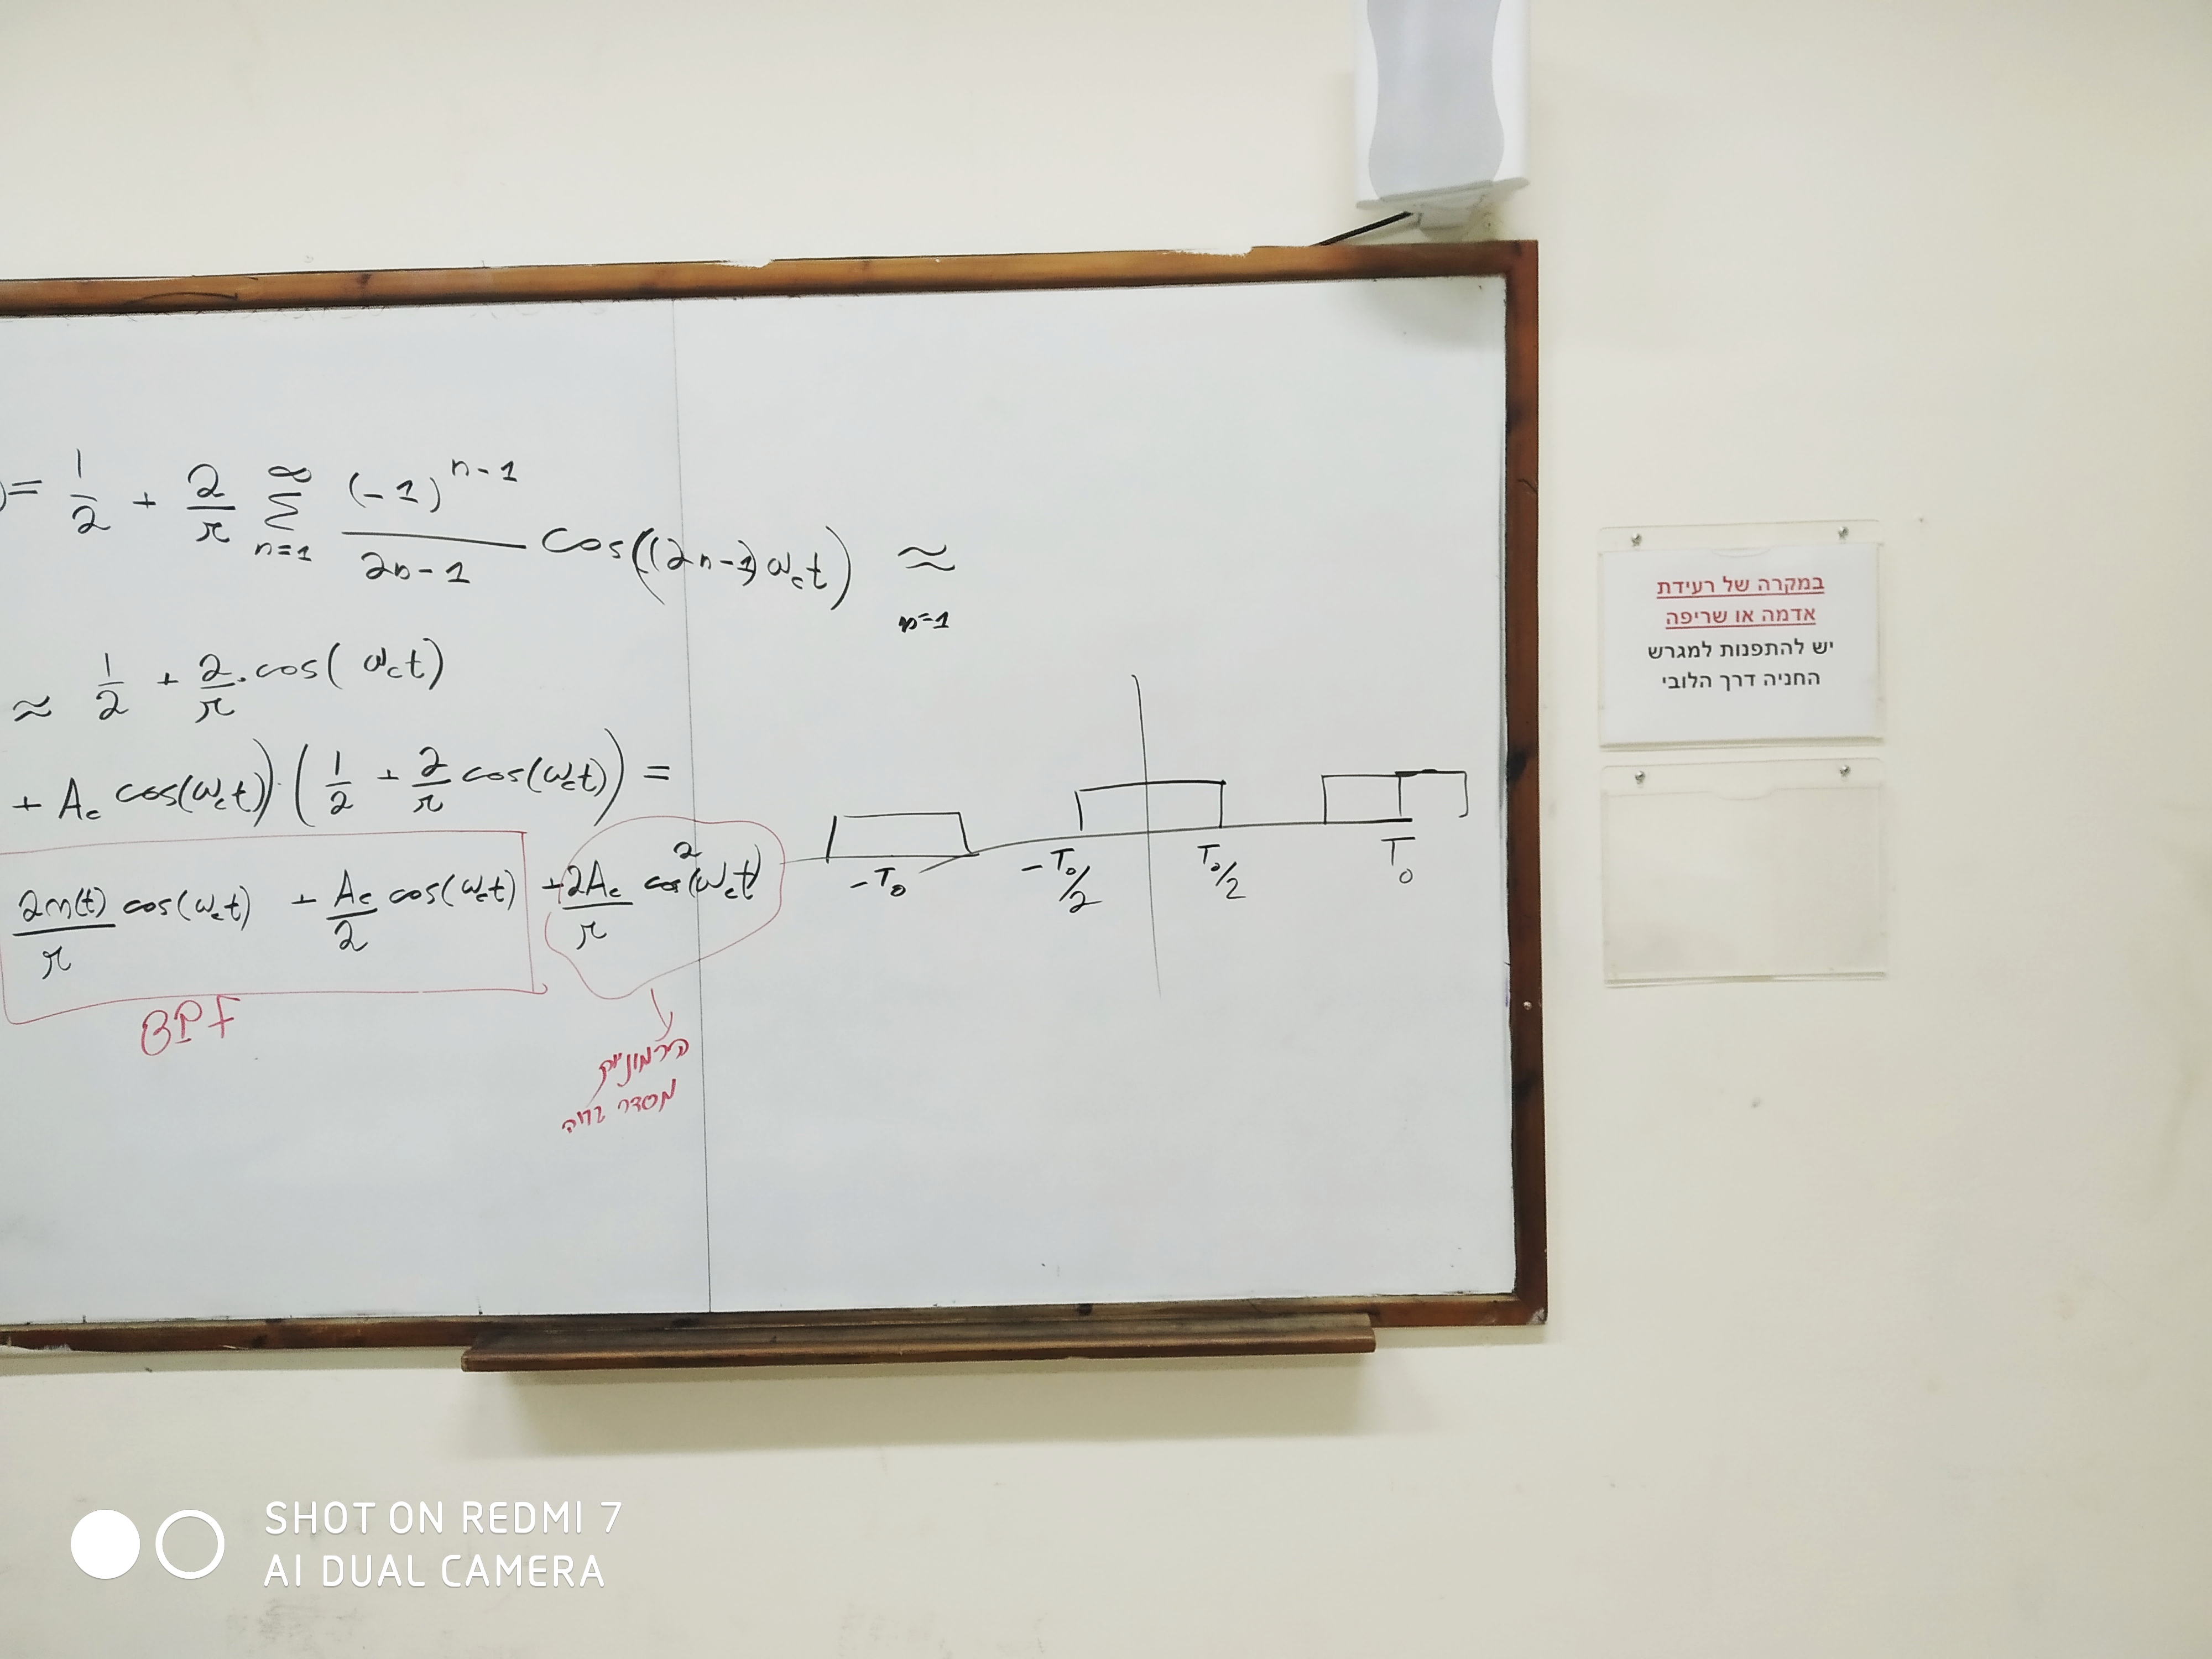 )= 1/2 + 2/π ∞ Σ n=1 (-1)^(n-1) / 2n-1 cos((2n-1)ω_c t) ≈ n=1
≈ 1/2 + 2/π · cos( ω_c t)
+ A_c cos(ω_c t))·(1/2 + 2/π cos(ω_c t)) =
2m(t)/π cos(ω_c t) + A_c/2 cos(ω_c t) + 2A_c/π cos²(ω_c t)
BPF
הירמוניות
מסדר גבוה
-T₀ -T₀/2 T₀/2 T₀
במקרה של רעידת
אדמה או שריפה
יש להתפנות למגרש
החניה דרך הלובי
SHOT ON REDMI 7
AI DUAL CAMERA